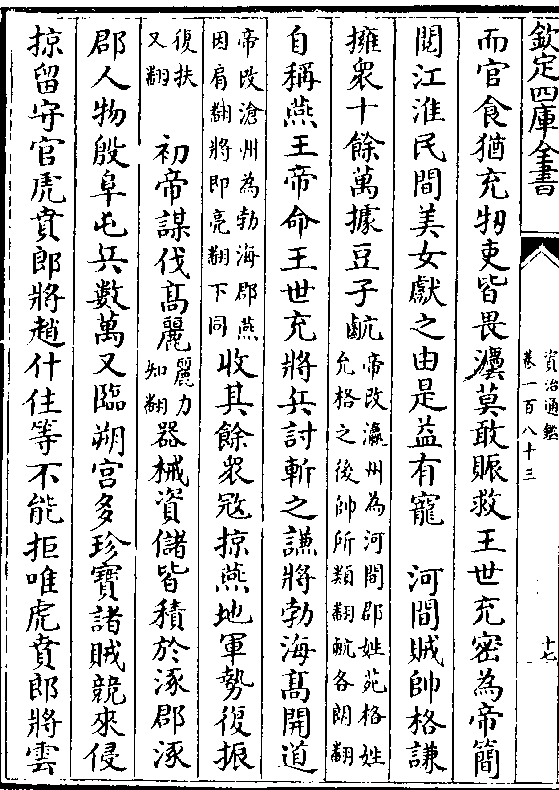 欽定四庫全書
資治通鑑
卷一百八十三
十七
而官食猶充牣吏皆畏灋莫敢賑救王世充密為帝簡
閱江淮民間美女獻之由是益有寵　河間賊帥格謙
擁衆十餘萬據豆子䴚帝改瀛州為河間郡姓苑格姓允格之後帥所類翻䴚各朗翻
自稱燕王帝命王世充將兵討斬之謙將勃海髙開道
帝改滄州為勃海郡燕因肩翻將即亮翻下同收其餘衆宼掠燕地軍勢復振
復扶又翻　初帝謀伐髙麗麗力知翻器械資儲皆積於涿郡涿
郡人物殷阜屯兵數萬又臨朔宮多珍寶諸賊競來侵
掠留守官虎賁郎將趙什住等不能拒唯虎賁郎將雲